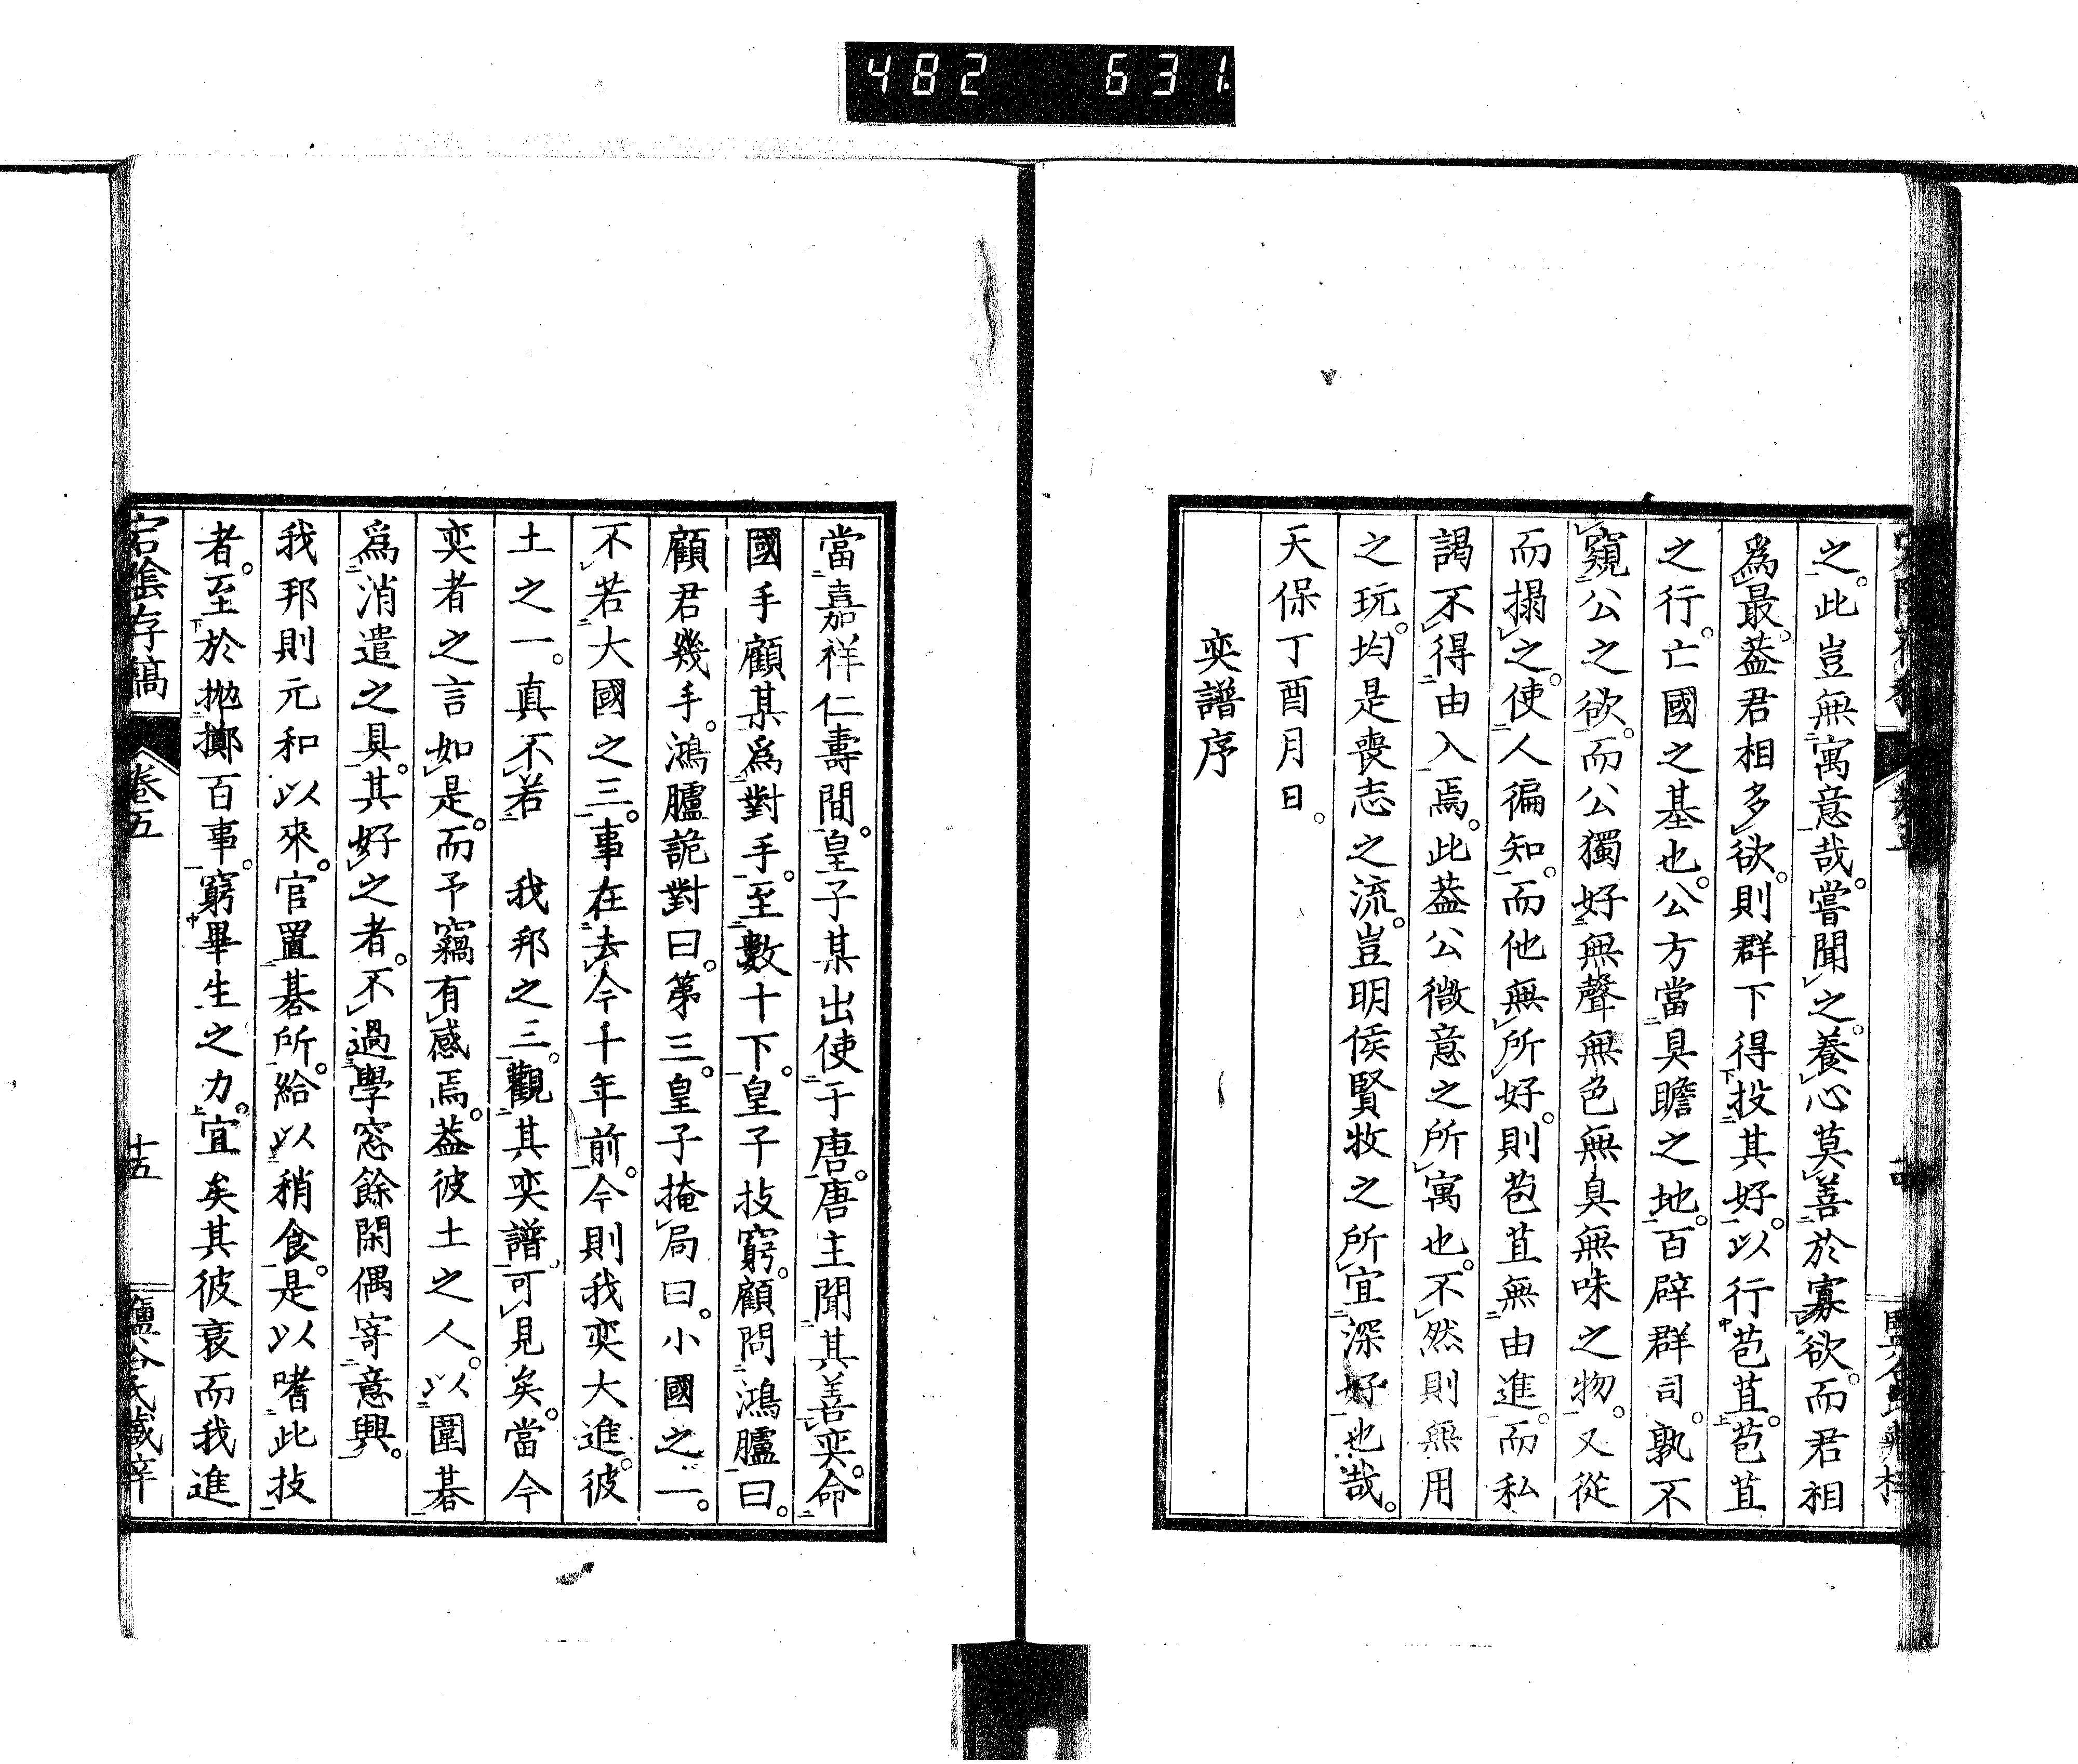 482 631.
之。此豈無寓意哉。嘗聞之。養心莫善於寡欲。而君相
爲最。葢君相多欲。則群下得投其好。以行苞苴。苞苴
之行。亡國之基也。公方當具瞻之地。百辟群司。孰不
窺公之欲。而公獨好無聲無色無臭無味之物。又從
而搨之。使人徧知。而他無所好。則苞苴無由進。而私
謁不得由入焉。此葢公微意之所寓也。不然則無用
之玩。均是喪志之流。豈明侯賢牧之所宜深好也哉。
天保丁酉月日。
奕譜序
當嘉祥仁壽間。皇子某出使于唐。唐主聞其善奕。命
國手顧某爲對手。至數十下。皇子技窮。顧問鴻臚曰。
顧君幾手。鴻臚詭對曰。第三。皇子掩局曰。小國之一。
不若大國之三。事在去今千年前。今則我奕大進。彼
土之一。真不若 我邦之三。觀其奕譜。可見矣。當今
奕者之言如是。而予竊有感焉。葢彼土之人。以圍碁
爲消遣之具。其好之者。不過學窓餘閑偶寄意興。
我邦則元和以來。官置碁所。給以稍食。是以嗜此技
者。至於抛擲百事。窮畢生之力。宜矣其彼衰而我進
宕陰存稿 卷五 十五